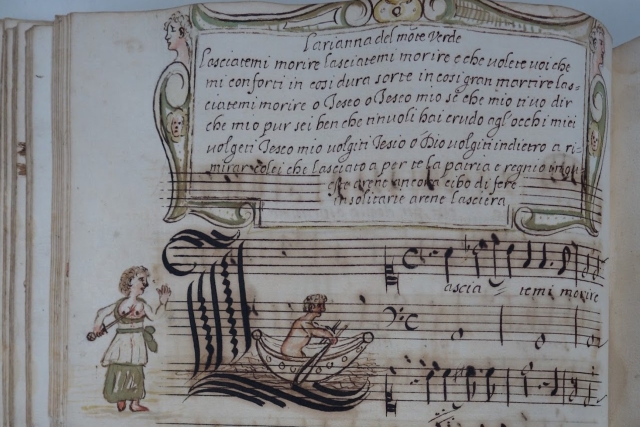 Larianna del mōte Verde
Lasciatemi morire lasciatemi morire e che volete voi che
mi conforti in cosi dura sorte in cosi gran martire las-
ciatemi morire o Teseo o Teseo mio se che mio ti vo dir
che mio pur sei ben che tinvoli hai crudo agl'occhi miei
volgeti Teseo mio volgiti Tesio o Dio volgiti indietro a ri-
mirar colei che lasciato a per te la patria e regnio in
arene ancora cibo di fere
insolitarie arene lasciera
ascia temi morire